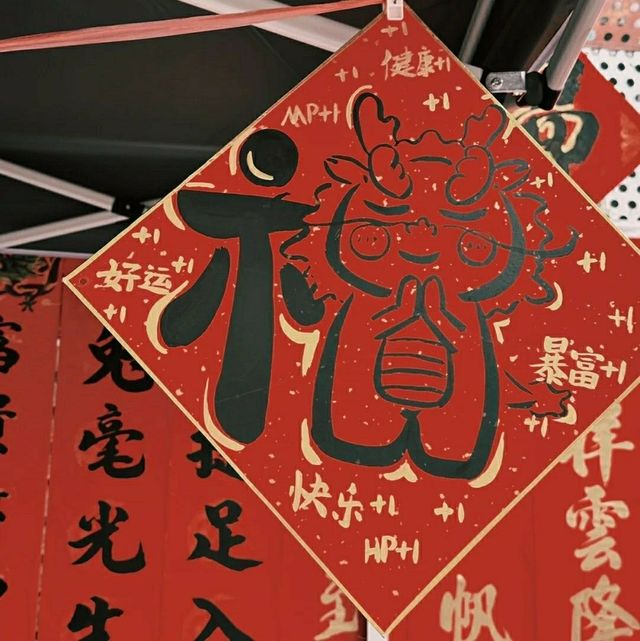 健康+1
+1
+1
MP+1
+1
+1
+1
好运+1
+1
+1
+1
暴富+1
+1
快乐+1
+1
HP+1
兔毫光生
捷足入
祥雲隆
帆